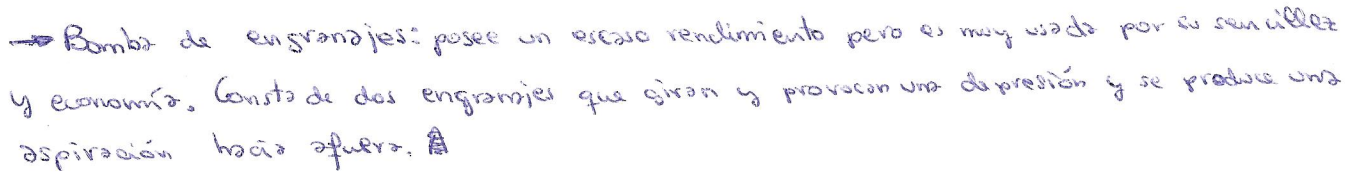 → Bomba de engranajes: posee un escaso rendimiento pero es muy usada por su sencillez
y economía. Consta de dos engranajes que giran y provocan una depresión y se produce una
aspiración hacia afuera.